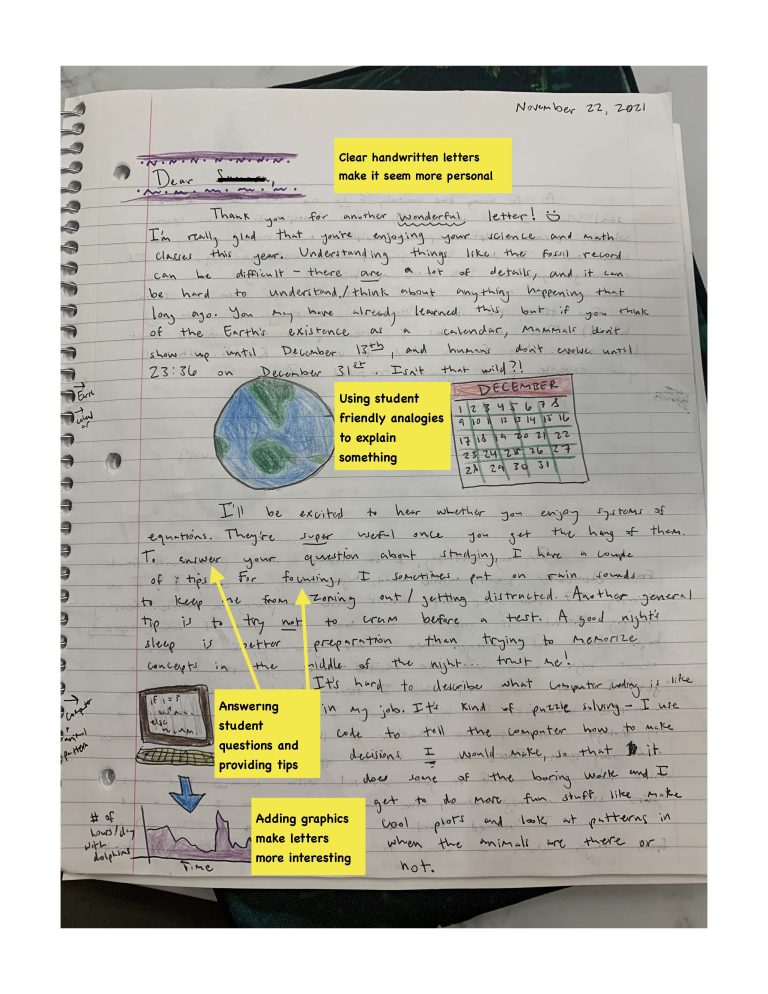 November 22, 2021
Clear handwritten letters
make it seem more personal
Dear
Thank you for another wonderful letter! ☺
I'm really glad that you're enjoying your science and math
classes this year. Understanding things like the fossil record
can be difficult - there are a lot of details, and it can
be hard to understand/think about anything happening that
long ago. You may have already learned this, but if you think
of the Earth's existence as a calendar, mammals don't
show up until December 13th, and humans don't evolve until
23:36 on December 31st. Isn't that wild?!
→ Earth
Using student
friendly analogies
to explain
something
DECEMBER
1 2 3 4 5 6 7 8
9 10 11 12 13 14 15 16
17 18 19 20 21 22
23 24 25 26 27
28 29 30 31
I'll be excited to hear whether you enjoy systems of
equations. They're super useful once you get the hang of them.
To answer your question about studying, I have a couple
of tips. For focusing, I sometimes put on rain sounds
to keep me from zoning out/getting distracted. Another general
tip is to try not to cram before a test. A good night's
sleep is better preparation than trying to memorize
concepts in the middle of the night... trust me!
It's hard to describe what computer coding is like
in my job. It's kind of puzzle solving - I use
code to tell the computer how to make
decisions I would make, so that it
does some of the boring work and I
get to do more fun stuff like make
cool plots and look at patterns in
when the animals are there or
not.
→ Computer
pattern
if i = 5
else
Answering
student
questions and
providing tips
# of
hours/day
with
dolphins
Time
Adding graphics
make letters
more interesting